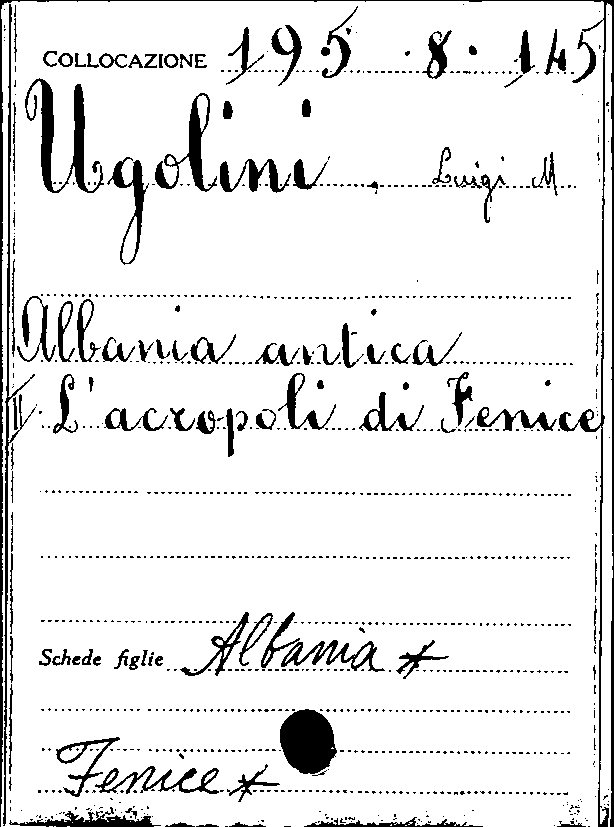 COLLOCAZIONE 195 · 8 · 145
Ugolini . Luigi M
Albania antica
II. L'acropoli di Fenice
Schede figlie Albania *
Fenice *